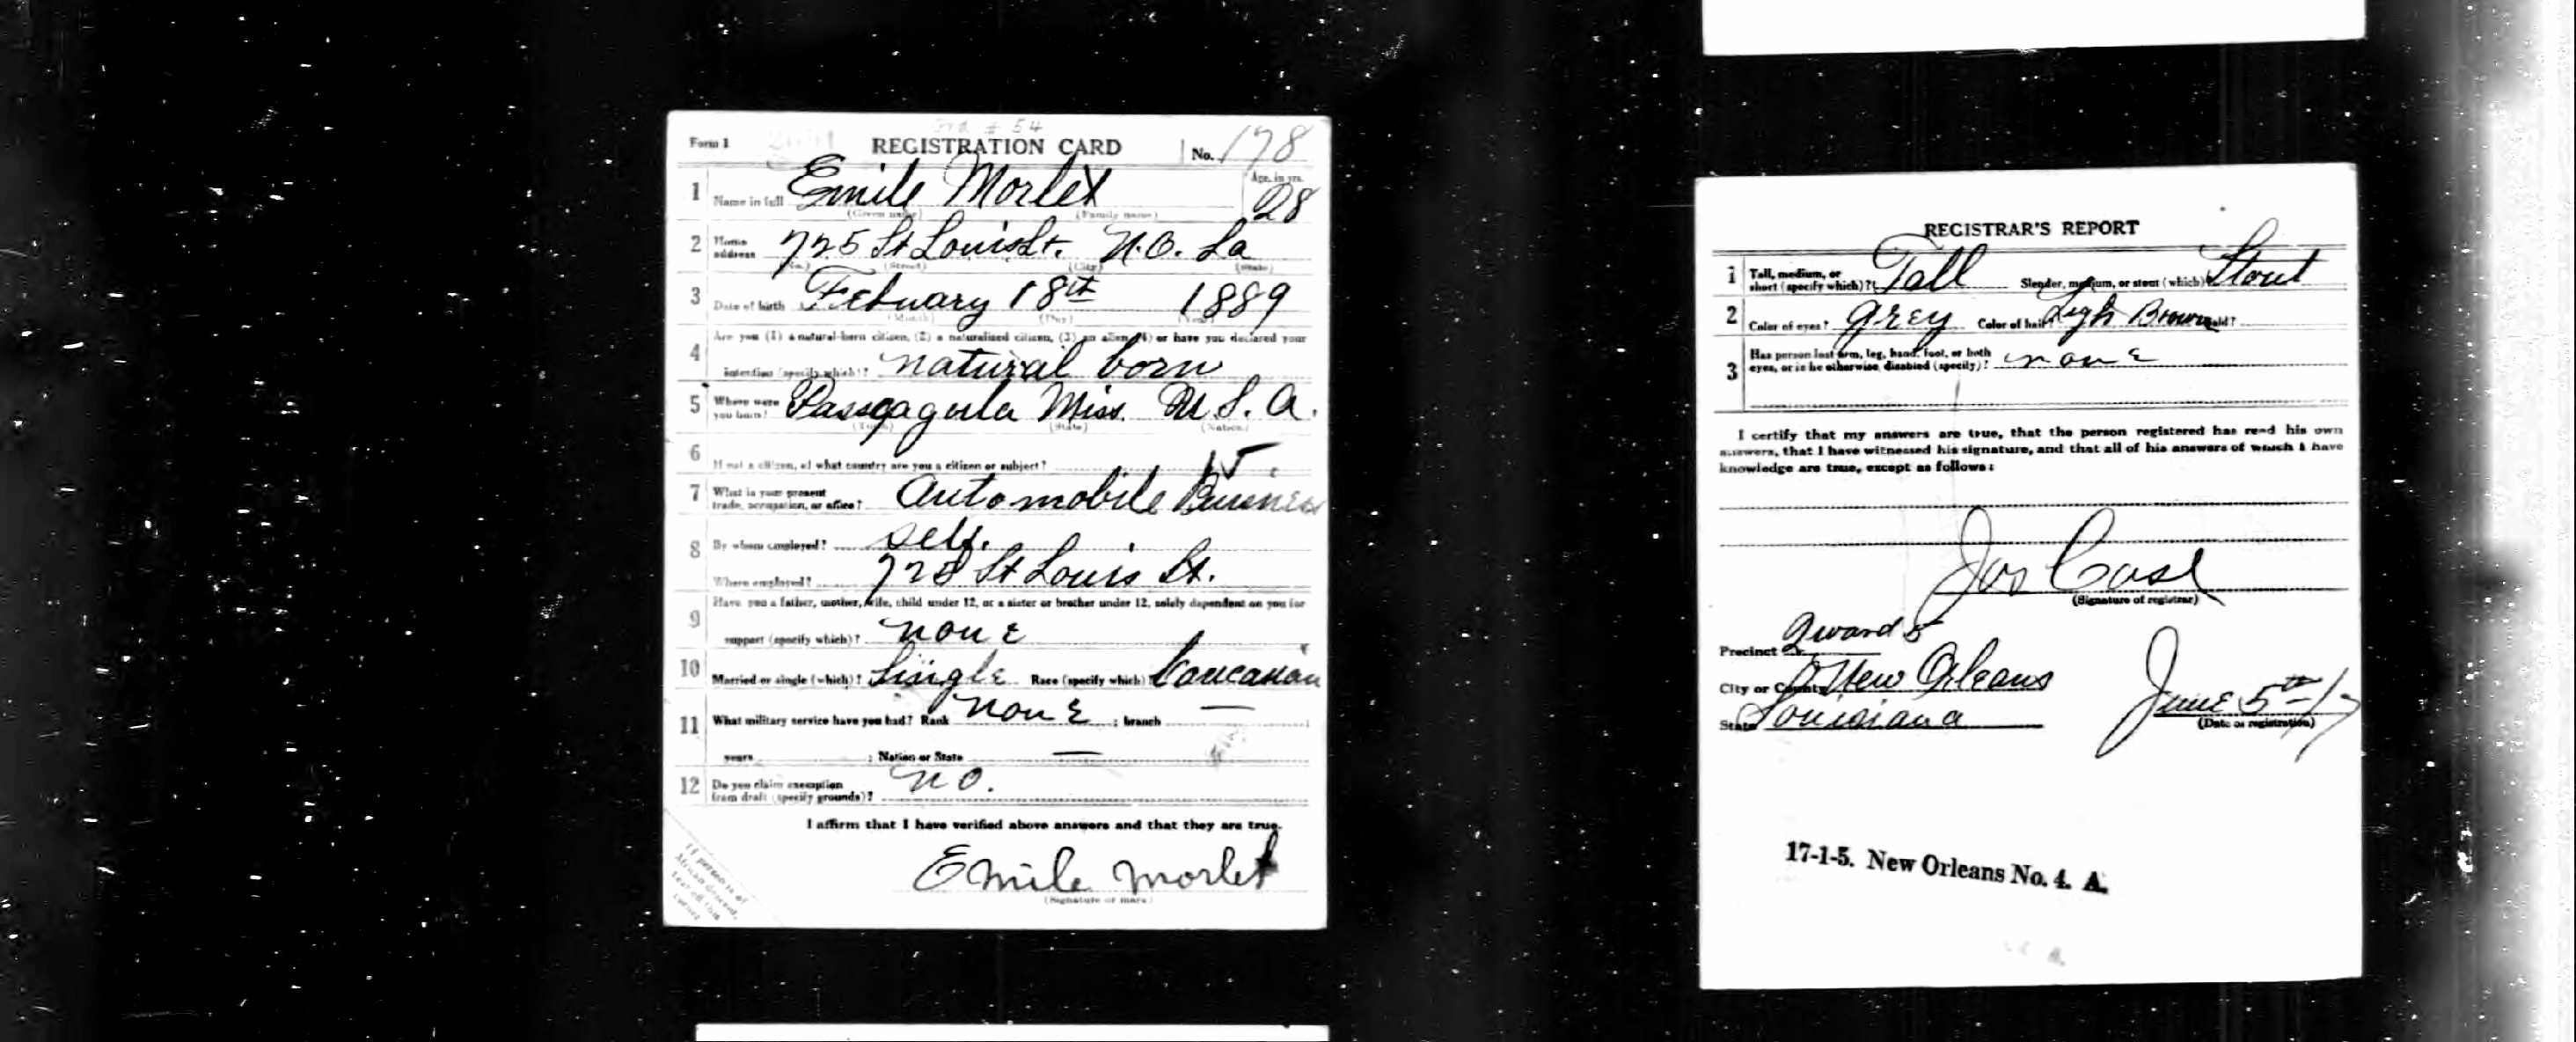 Ord # 54
Form 1 REGISTRATION CARD No. 178
1 Name in full Emile Morlet Age, in yrs. 28
(Given name) (Family name)
2 Home address 725 St Louis St. N.O. La
(No.) (Street) (City) (State)
3 Date of birth Febuary 18th 1889
(Month) (Day) (Year)
4 Are you (1) a natural-born citizen, (2) a naturalized citizen, (3) an alien, (4) or have you declared your
intention (specify which)? natural born
5 Where were you born? Passcagoula Miss. U.S.A.
(Town) (State) (Nation)
6 If not a citizen, of what country are you a citizen or subject?
7 What is your present trade, occupation, or office? Automobile Business
8 By whom employed? self.
Where employed? 725 St Louis St.
9 Have you a father, mother, wife, child under 12, or a sister or brother under 12, solely dependent on you for
support (specify which)? none
10 Married or single (which)? Single Race (specify which)? Caucasian
11 What military service have you had? Rank none ; branch —
years ; Nation or State —
12 Do you claim exemption from draft (specify grounds)? no.
I affirm that I have verified above answers and that they are true.
Emile Morlet
(Signature or mark)
If person is of
African descent,
tear off this
corner
REGISTRAR'S REPORT
1 Tall, medium, or short (specify which)? Tall Slender, medium, or stout (which)? Stout
2 Color of eyes? grey Color of hair? Ligh Brown Bald?
3 Has person lost arm, leg, hand, foot, or both
eyes, or is he otherwise disabled (specify)? none
I certify that my answers are true, that the person registered has read his own
answers, that I have witnessed his signature, and that all of his answers of which I have
knowledge are true, except as follows:
(Signature of registrar)
Precinct 2 ward 5
City or County New Orleans
State Louisiana
June 5th 17
(Date of registration)
17-1-5. New Orleans No. 4. A.